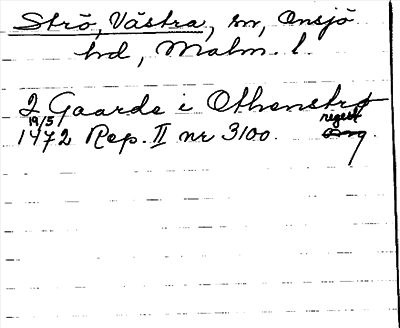 Strö, Västra, sn, Onsjö
hd, Malm. l.
2 Gaarde i Othenstrø
19/5
1472 Rep. II nr 3100. regest